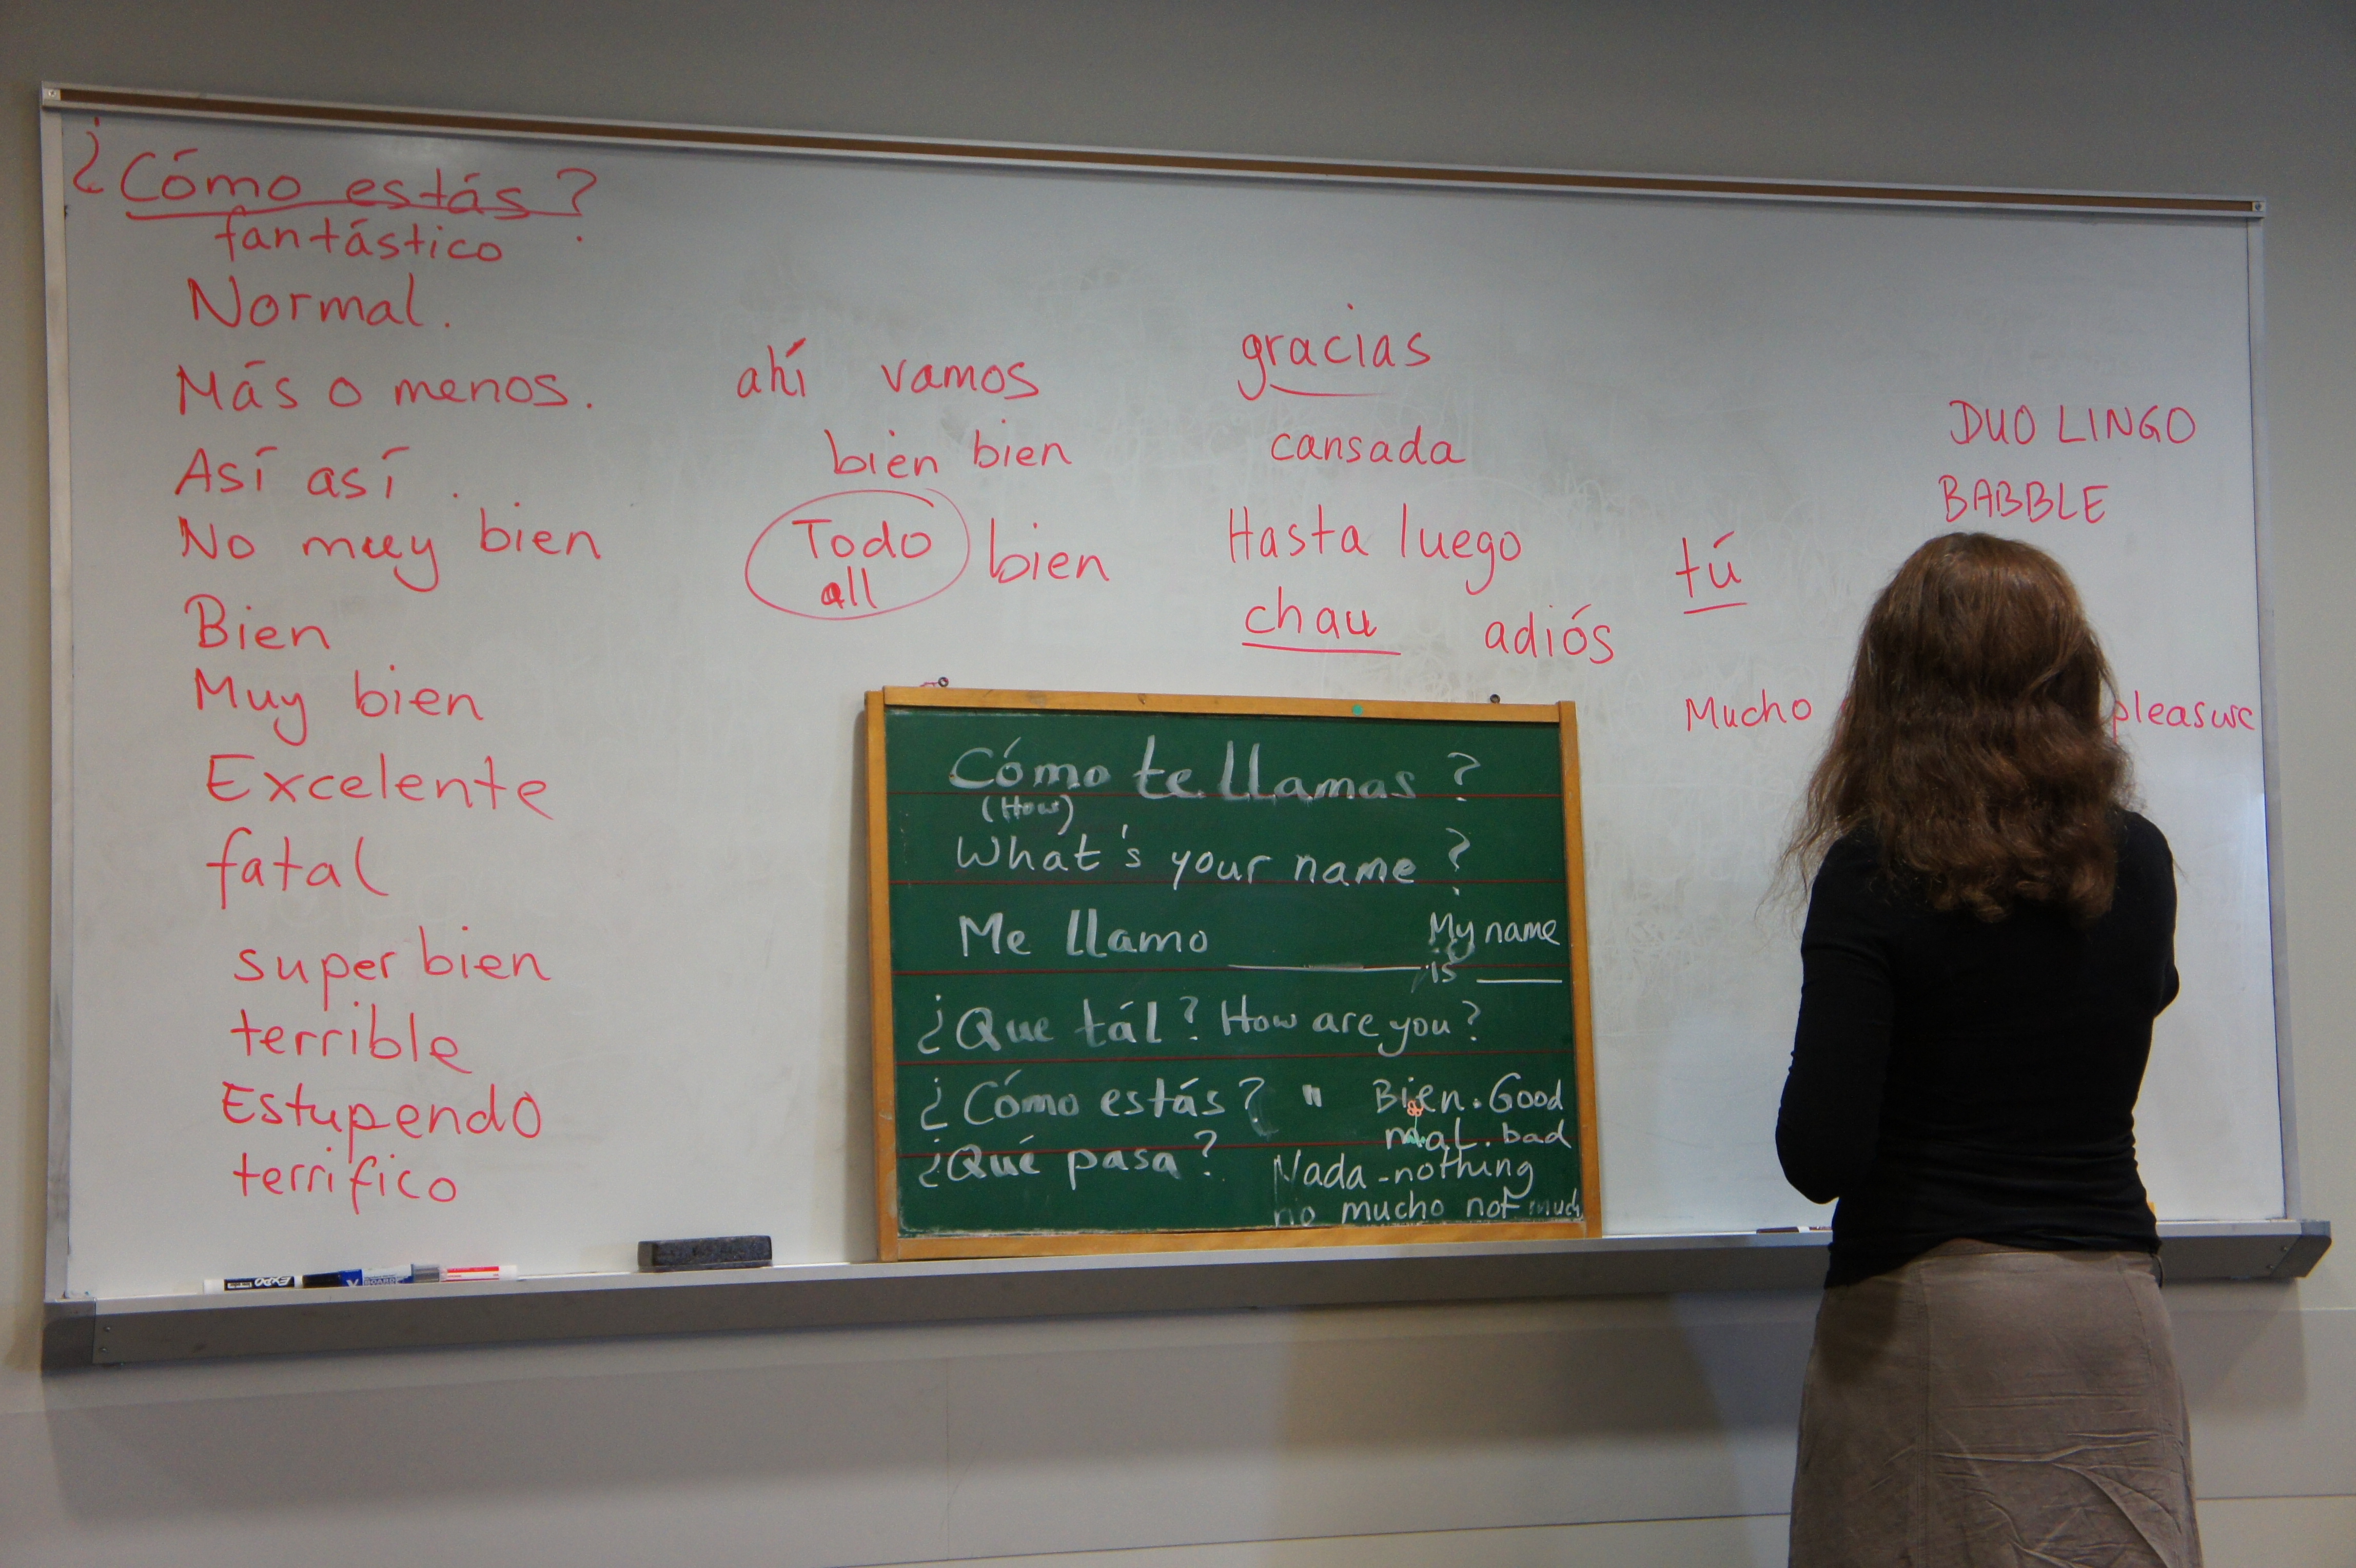 ¿Cómo estás?
fantástico
Normal.
Más o menos.
Así así.
No muy bien
Bien
Muy bien
Excelente
fatal
super bien
terrible
Estupendo
terrifico
ahí vamos
bien bien
Todo bien
all
gracias
cansada
Hasta luego
chau adiós
tú
DUO LINGO
BABBLE
Mucho pleasure
Cómo te llamas?
(How)
What's your name?
Me llamo ______ My name
is ____
¿Que tál? How are you?
¿Cómo estás? " Bien. Good
mal. bad
¿Qué pasa? Nada - nothing
no mucho not much
EXPO